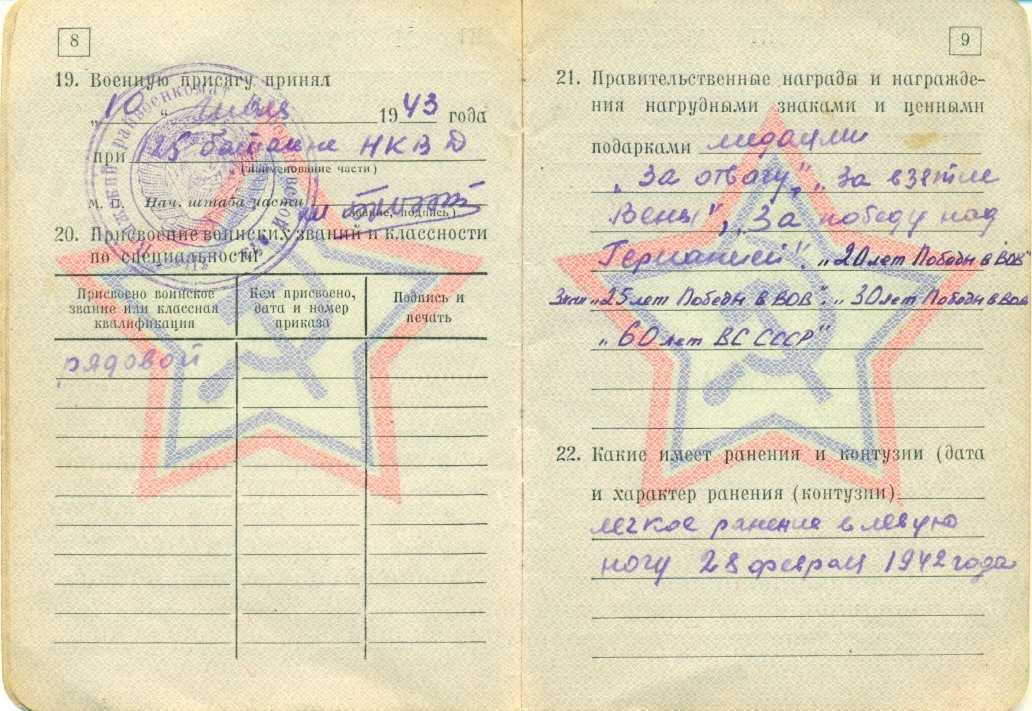 8
19. Военную присягу принял
„10“ 1943 года
при 125 баталионе НКВД
(наименование части)
М. П. Нач. штаба части
(звание, подпись)
20. Присвоение воинских званий и классности
по специальности
Присвоено воинское звание или классная квалификация
Кем присвоено, дата и номер приказа
Подпись и печать
рядовой
9
21. Правительственные награды и награжде-
ния нагрудными знаками и ценными
подарками медалями
„За отвагу“, „За взятие
Вены“, „За победу над
Германией“. „20 лет Победы в ВОВ“
Знак „25 лет Победы в ВОВ“. „30 лет Победы в ВОВ
„60 лет ВС СССР“
22. Какие имеет ранения и контузии (дата
и характер ранения (контузии)
легкое ранение в левую
ногу 28 февраля 1942 года